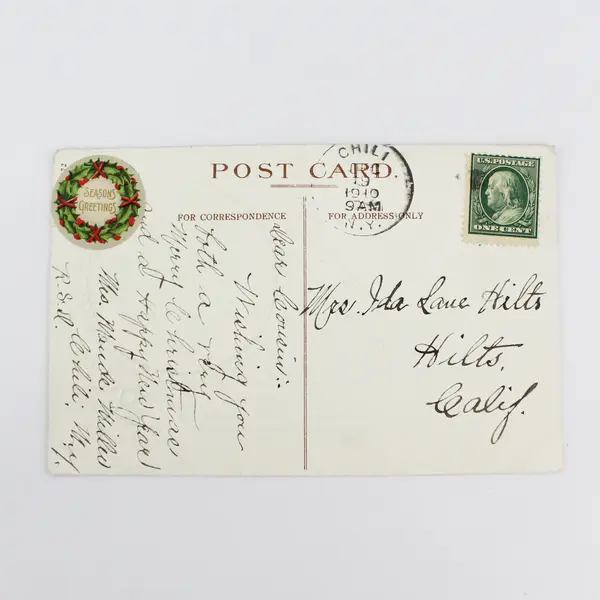 SEASONS
GREETINGS
POST CARD.
FOR CORRESPONDENCE
FOR ADDRESS ONLY
CHILI
DEC
19
1910
9AM
N.Y.
U.S. POSTAGE
ONE CENT
Dear Cousin:-
Wishing you
both a very
Merry Christmas
and a Happy New Year
Mrs. Maude Miller
Chili, N.Y.
Mrs. Ida Lane Hilts
Hilts,
Calif.